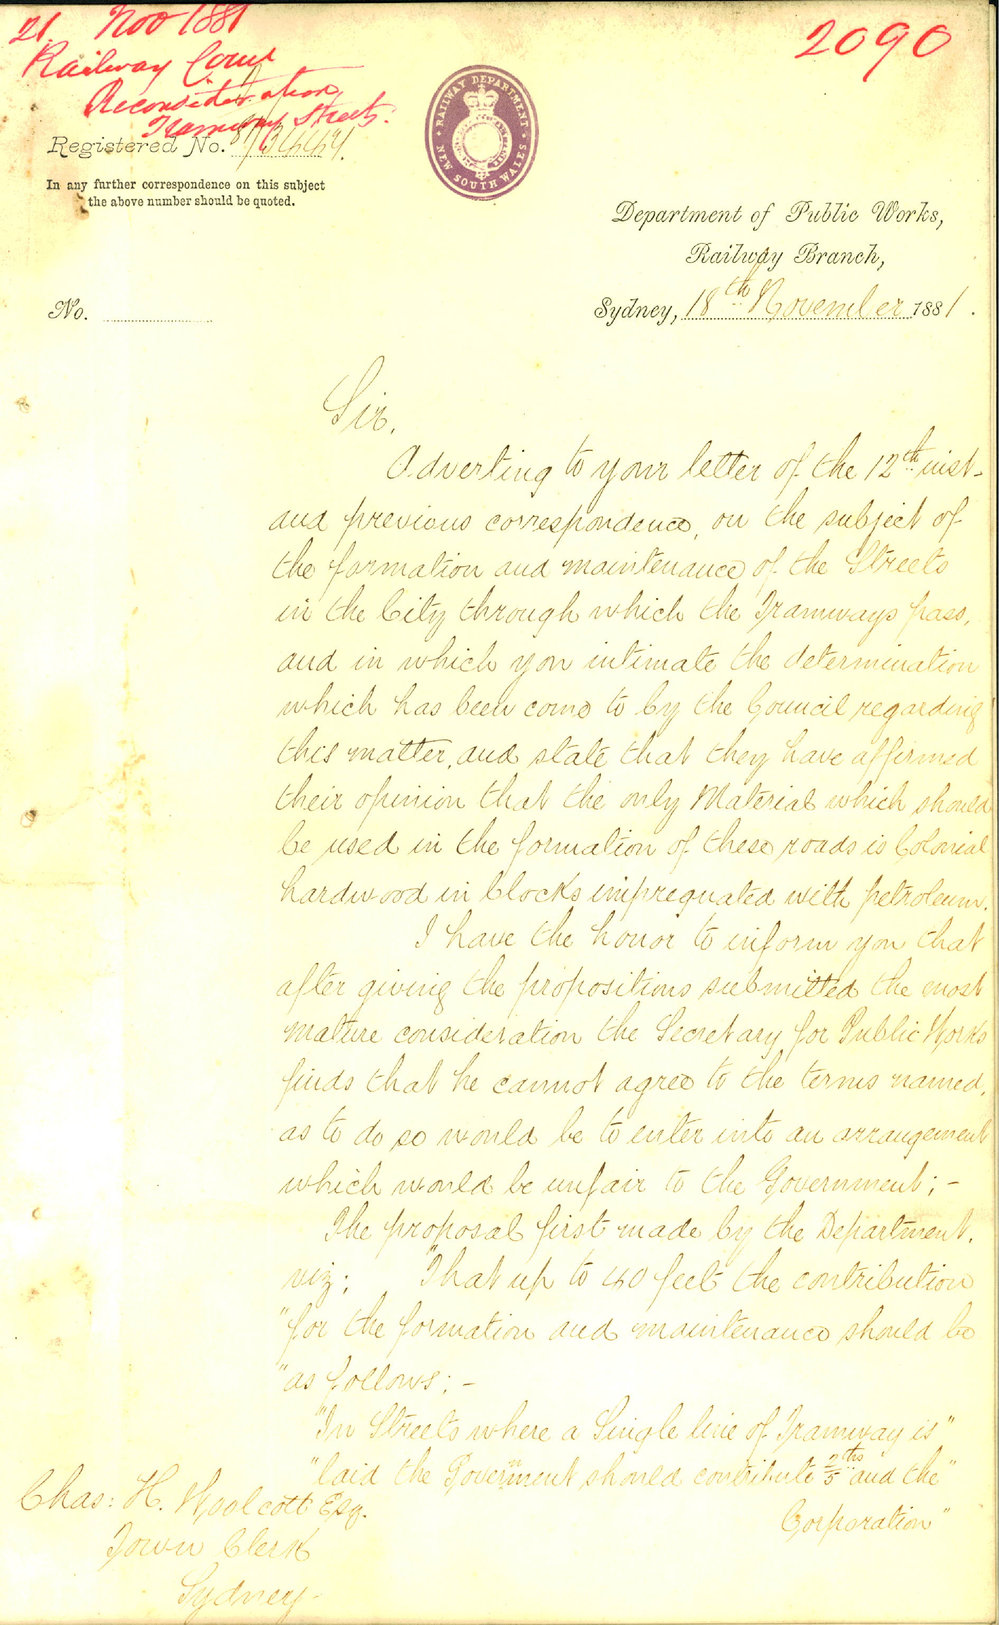 21 Nov 1881
2090
Railway Com
Reconsideration
Tramway Streets.
Registered No.
In any further correspondence on this subject
the above number should be quoted.
RAILWAY DEPARTMENT
NEW SOUTH WALES
Department of Public Works,
Railway Branch,
No.
Sydney, 18th November 1881.
Sir,
Adverting to your letter of the 12th inst-
and previous correspondence, on the subject of
the formation and maintenance of the Streets
in the City through which the Tramways pass,
and in which you intimate the determination
which has been come to by the Council regarding
this matter, and state that they have affirmed
their opinion that the only Material which should
be used in the formation of these roads is Colonial
hardwood in blocks impregnated with petroleum.
I have the honor to inform you that
after giving the propositions submitted the most
mature consideration the Secretary for Public Works
finds that he cannot agree to the terms named,
as to do so would be to enter into an arrangement
which would be unfair to the Government; -
The proposal first made by the Department,
viz; "That up to 40 feet the contribution
"for the formation and maintenance should be
"as follows: -
"In Streets where a Single line of Tramway is"
"laid the Government should contribute 2/5ths and the"
Corporation"
Chas: H. Woolcott Esq.
Town Clerk
Sydney-